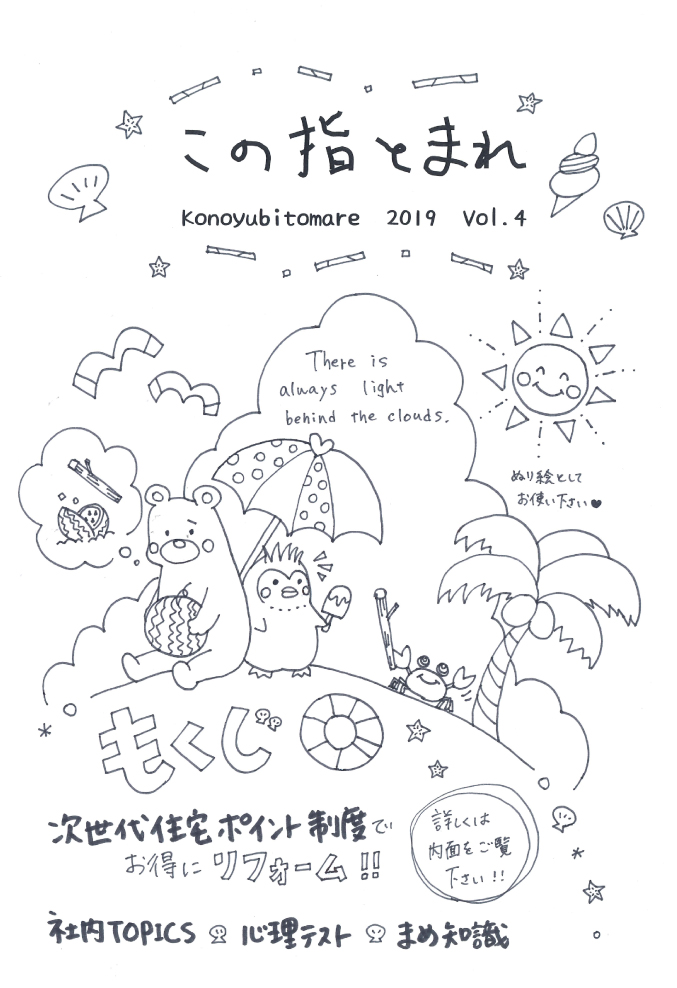 この指とまれ
Konoyubitomare 2019 Vol.4
There is
always light
behind the clouds.
ぬり絵として
お使い下さい♥
もくじ
次世代住宅ポイント制度で
お得にリフォーム!!
詳しくは
内面をご覧
下さい!!
社内TOPICS 心理テスト まめ知識